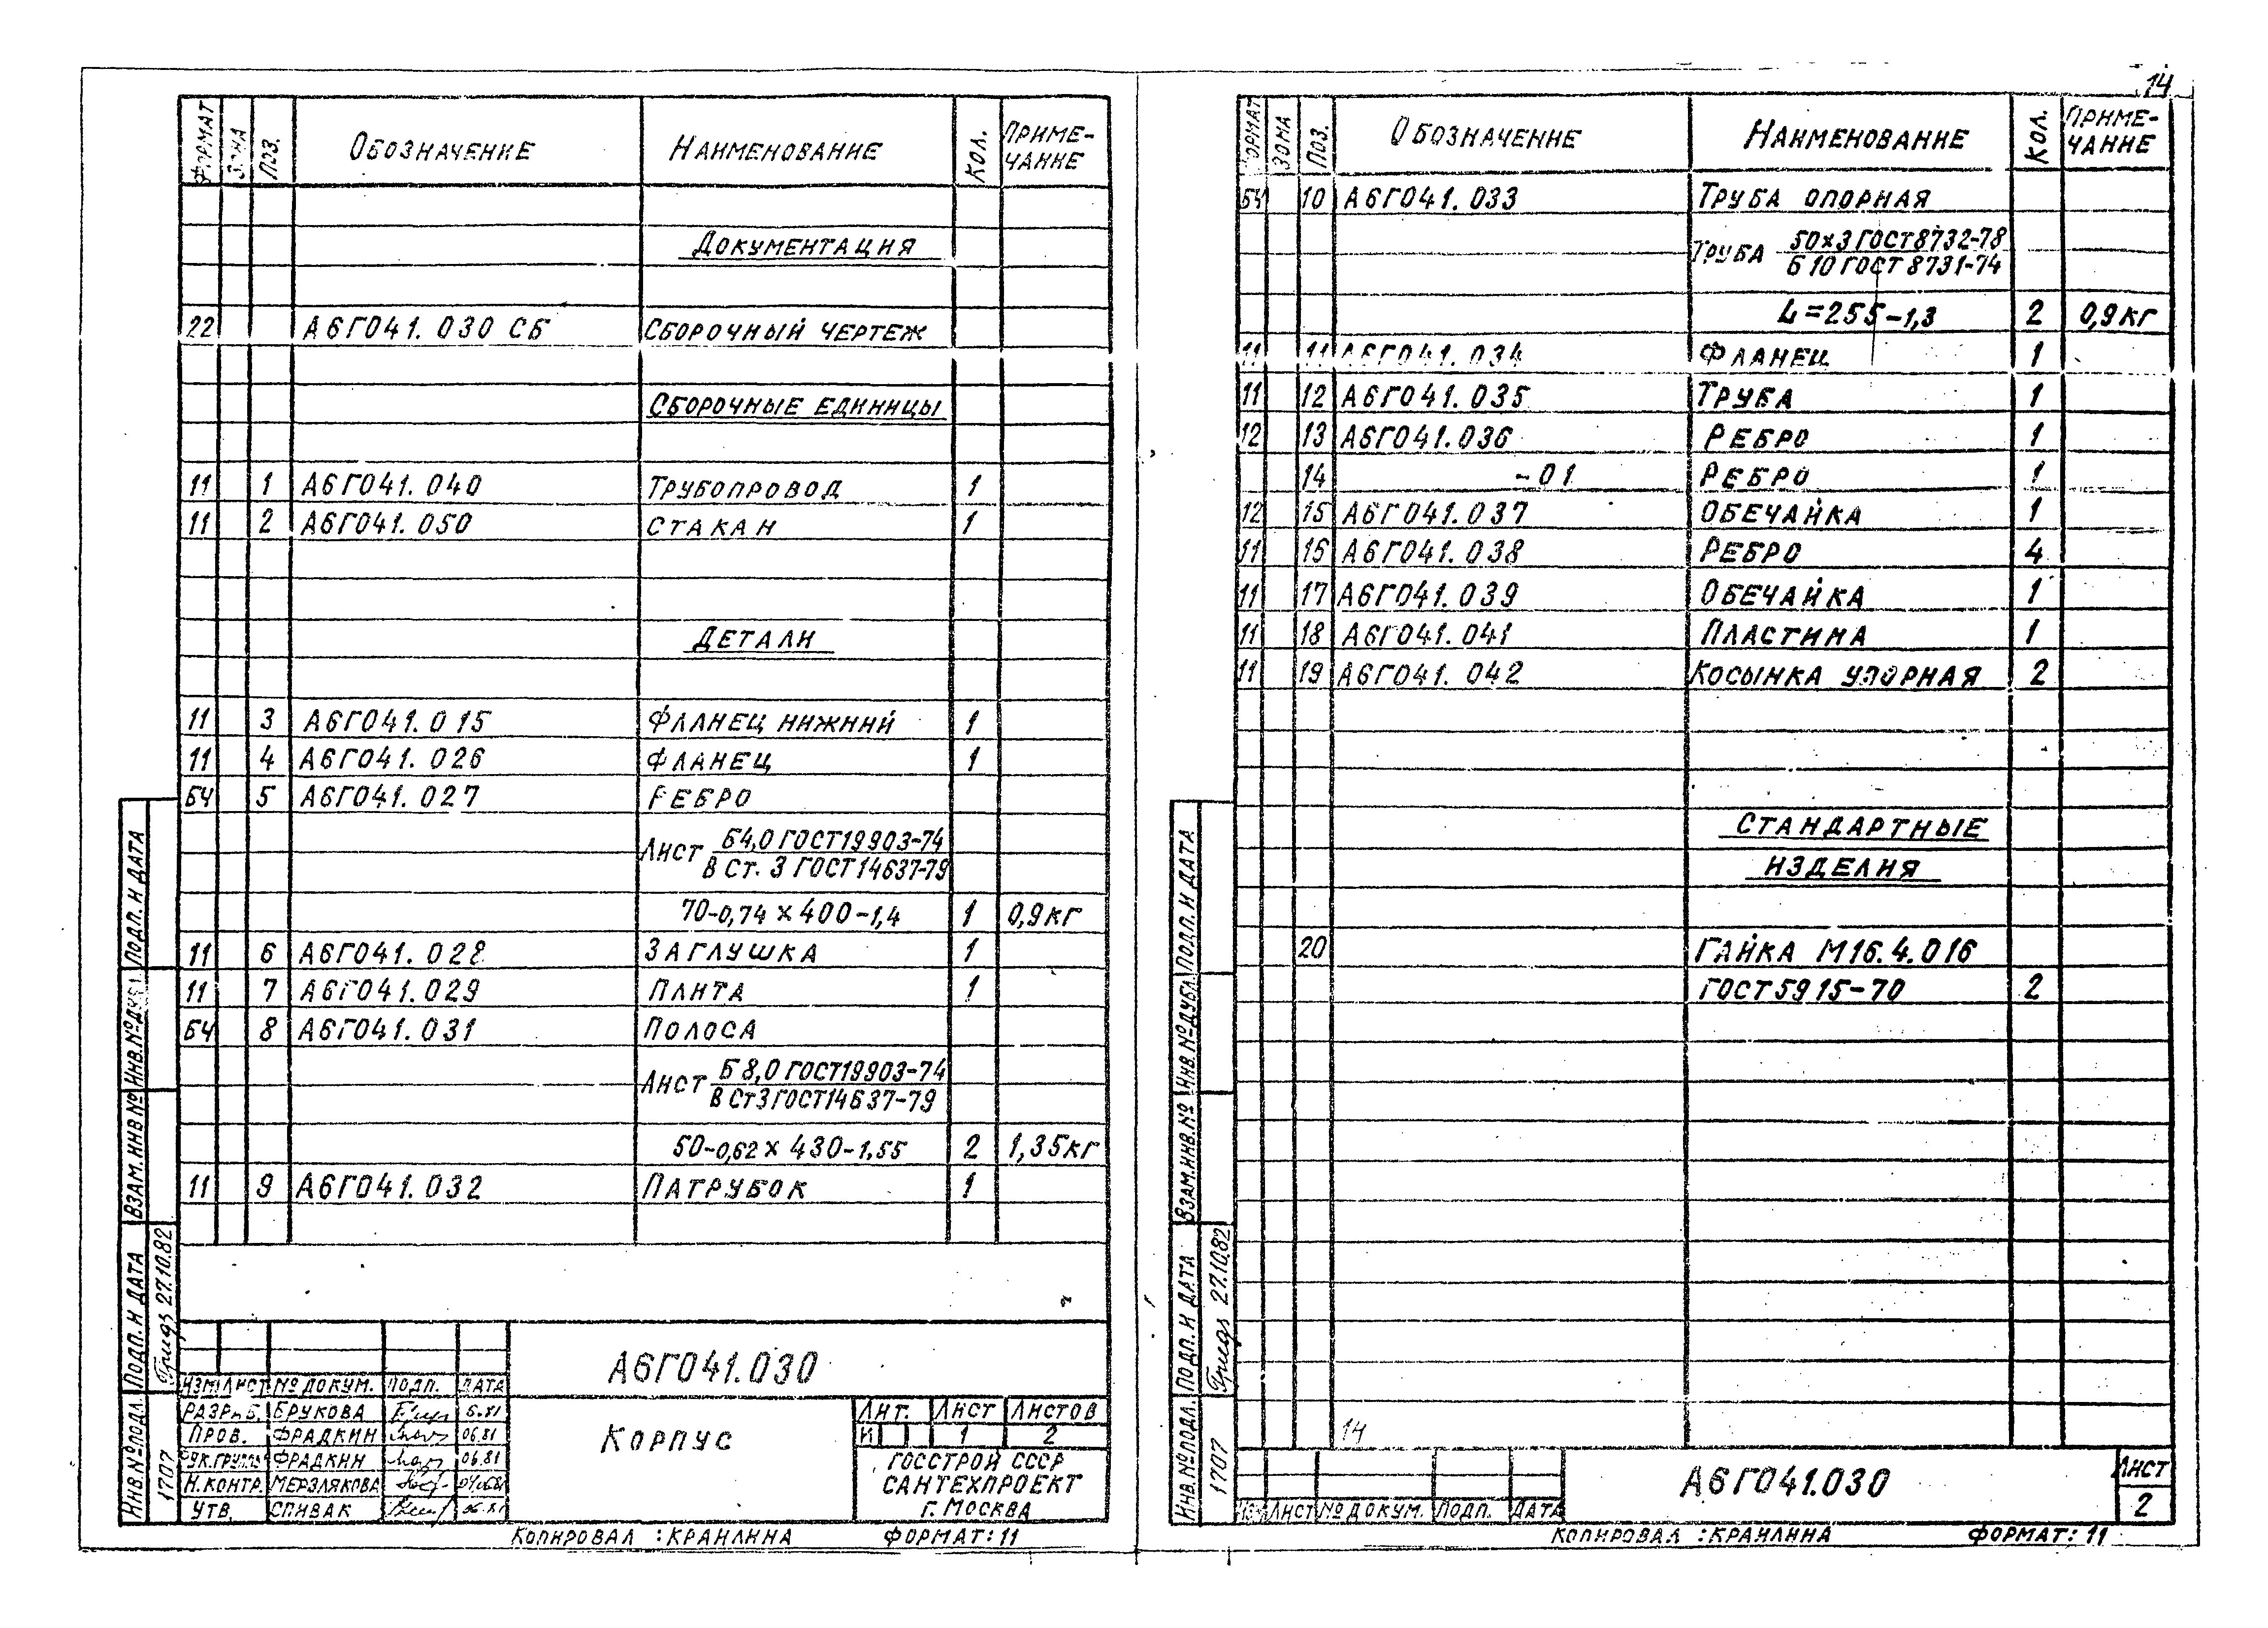 14
ФОРМАТ ЗОНА ПОЗ. ОБОЗНАЧЕНИЕ НАИМЕНОВАНИЕ КОЛ. ПРИМЕ-
ЧАНИЕ
ДОКУМЕНТАЦИЯ
22 А6Г041.030 СБ СБОРОЧНЫЙ ЧЕРТЕЖ
СБОРОЧНЫЕ ЕДИНИЦЫ
11 1 А6Г041.040 ТРУБОПРОВОД 1
11 2 А6Г041.050 СТАКАН 1
ДЕТАЛИ
11 3 А6Г041.015 ФЛАНЕЦ НИЖНИЙ 1
11 4 А6Г041.026 ФЛАНЕЦ 1
БЧ 5 А6Г041.027 РЕБРО
ЛИСТ Б4,0 ГОСТ19903-74
В СТ. 3 ГОСТ14637-79
70-0,74 × 400-1,4 1 0,9КГ
11 6 А6Г041.028 ЗАГЛУШКА 1
11 7 А6Г041.029 ПЛИТА 1
БЧ 8 А6Г041.031 ПОЛОСА
ЛИСТ Б 8,0 ГОСТ19903-74
В СТ3 ГОСТ14637-79
50-0,62 × 430-1,55 2 1,35КГ
11 9 А6Г041.032 ПАТРУБОК 1
А6Г041.030
ИЗМ ЛИСТ № ДОКУМ. ПОДП. ДАТА
РАЗРАБ. БРУКОВА 6.81
ПРОВ. ФРАДКИН 06.81
РУК.ГРУППЫ ФРАДКИН 06.81
Н.КОНТР. МЕРЗЛЯКОВА
УТВ. СПИВАК 06.81
КОРПУС
ЛИТ. ЛИСТ ЛИСТОВ
И 1 2
ГОССТРОЙ СССР
САНТЕХПРОЕКТ
Г. МОСКВА
КОПИРОВАЛ : КРАИЛИНА ФОРМАТ: 11
ИНВ.№ПОДЛ. ПОДП. И ДАТА ВЗАМ.ИНВ.№ ИНВ.№ДУБЛ ПОДП. И ДАТА
1707 27.10.82
ФОРМАТ ЗОНА ПОЗ. ОБОЗНАЧЕНИЕ НАИМЕНОВАНИЕ КОЛ. ПРИМЕ-
ЧАНИЕ
БЧ 10 А6Г041.033 ТРУБА ОПОРНАЯ
ТРУБА 50×3 ГОСТ8732-78
Б 10 ГОСТ 8731-74
L=255-1,3 2 0,9КГ
11 11 А6Г041.034 ФЛАНЕЦ 1
11 12 А6Г041.035 ТРУБА 1
12 13 А6Г041.036 РЕБРО 1
14 -01 РЕБРО 1
12 15 А6Г041.037 ОБЕЧАЙКА 1
11 16 А6Г041.038 РЕБРО 4
11 17 А6Г041.039 ОБЕЧАЙКА 1
11 18 А6Г041.041 ПЛАСТИНА 1
11 19 А6Г041.042 КОСЫНКА УПОРНАЯ 2
СТАНДАРТНЫЕ
ИЗДЕЛИЯ
20 ГАЙКА М16.4.016
ГОСТ5915-70 2
14
А6Г041.030
ИЗМ ЛИСТ № ДОКУМ. ПОДП. ДАТА
ЛИСТ
2
КОПИРОВАЛ : КРАИЛИНА ФОРМАТ: 11
ИНВ.№ПОДЛ. ПОДП. И ДАТА ВЗАМ.ИНВ.№ ИНВ.№ДУБЛ ПОДП. И ДАТА
1707 27.10.82